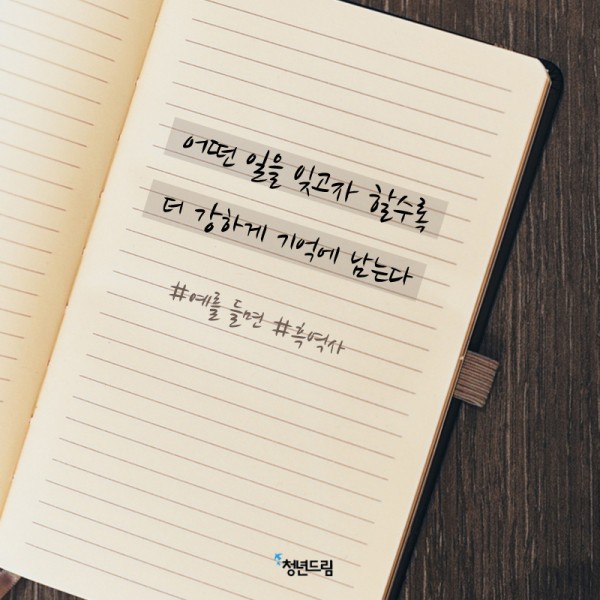 어떤 일을 잊고자 할수록
더 강하게 기억에 남는다
#예를 들면 #흑역사
청년드림